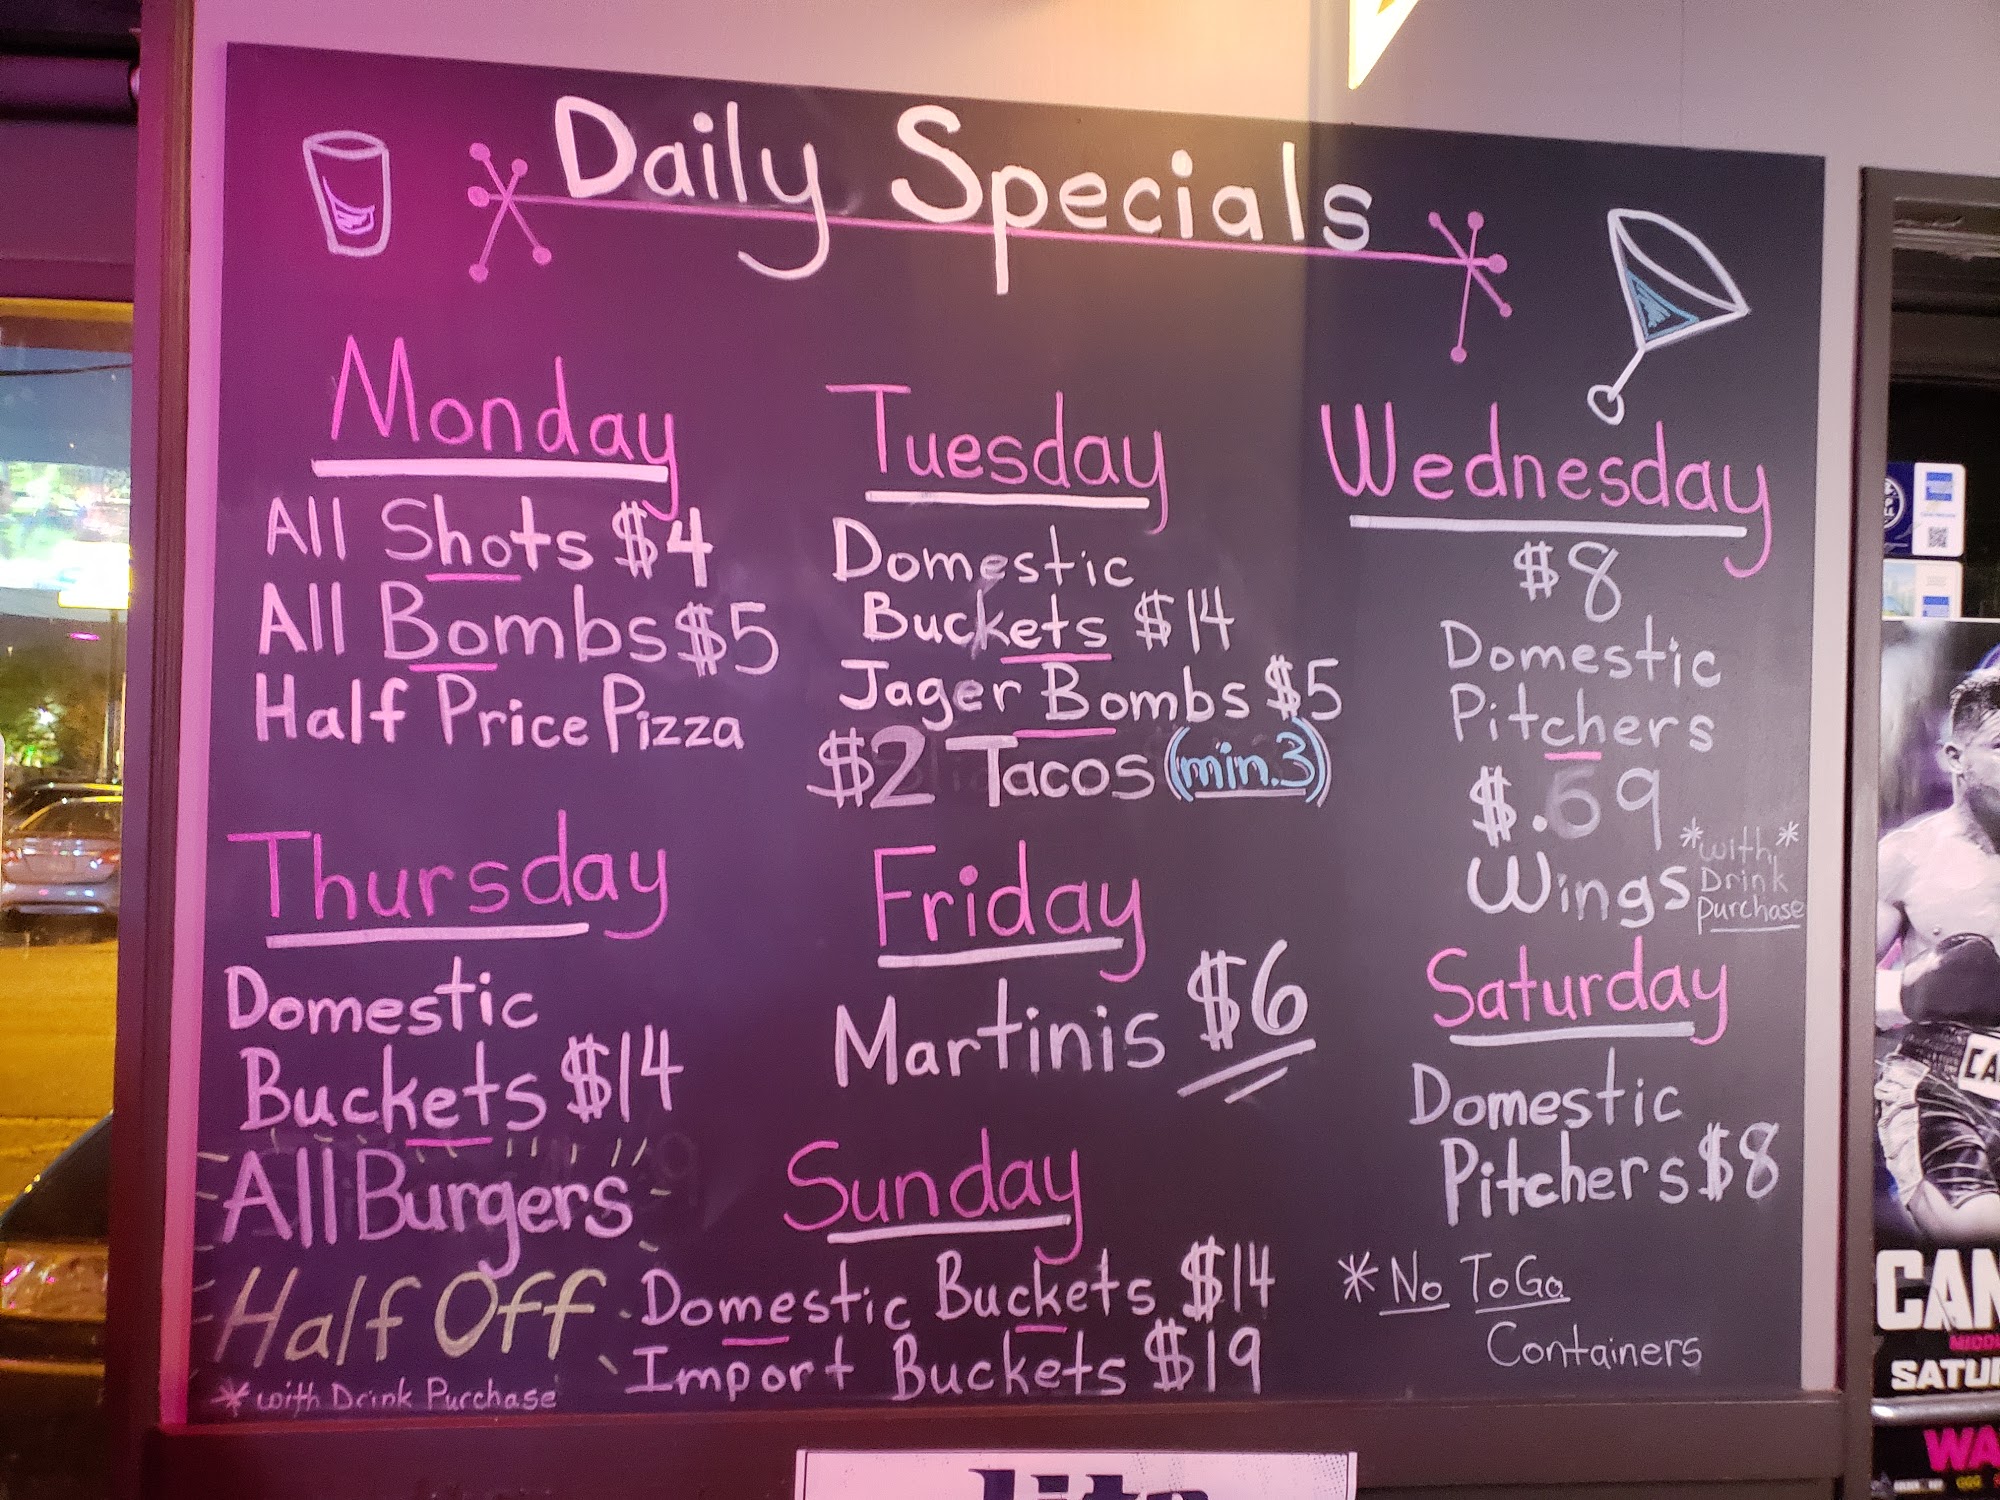 Daily Specials
Monday
All Shots $4
All Bombs $5
Half Price Pizza
Tuesday
Domestic
Buckets $14
Jager Bombs $5
$2 Tacos (min.3)
Wednesday
$8
Domestic
Pitchers
$.69
Wings
*with*
Drink
Purchase
Thursday
Domestic
Buckets $14
All Burgers
Half Off
* with Drink Purchase
Friday
Martinis $6
Saturday
Domestic
Pitchers $8
Sunday
Domestic Buckets $14
Import Buckets $19
* No To Go
Containers
lite
CAN
SATUR
WA